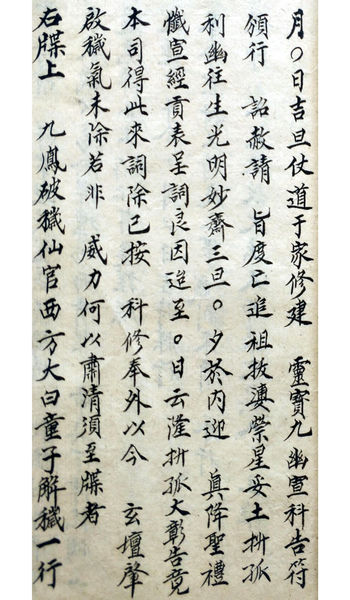 月〇日吉旦仗道于家修建　靈寶九幽宣科告符
頒行　詔赦請　旨度亡追祖拔凄禜星妥土析孤
利幽往生光明妙齋三旦〇夕於内迎　真降聖禮
懺宣經貢表呈詞良因迨至〇日云瀣析孤大彰告竟
本司得此來詞除已按　科修奉外以今　玄壇肇
啟穢氣未除若非　威力何以肅清須至牒者
右牒上　九鳳破穢仙官西方大白童子解穢一行